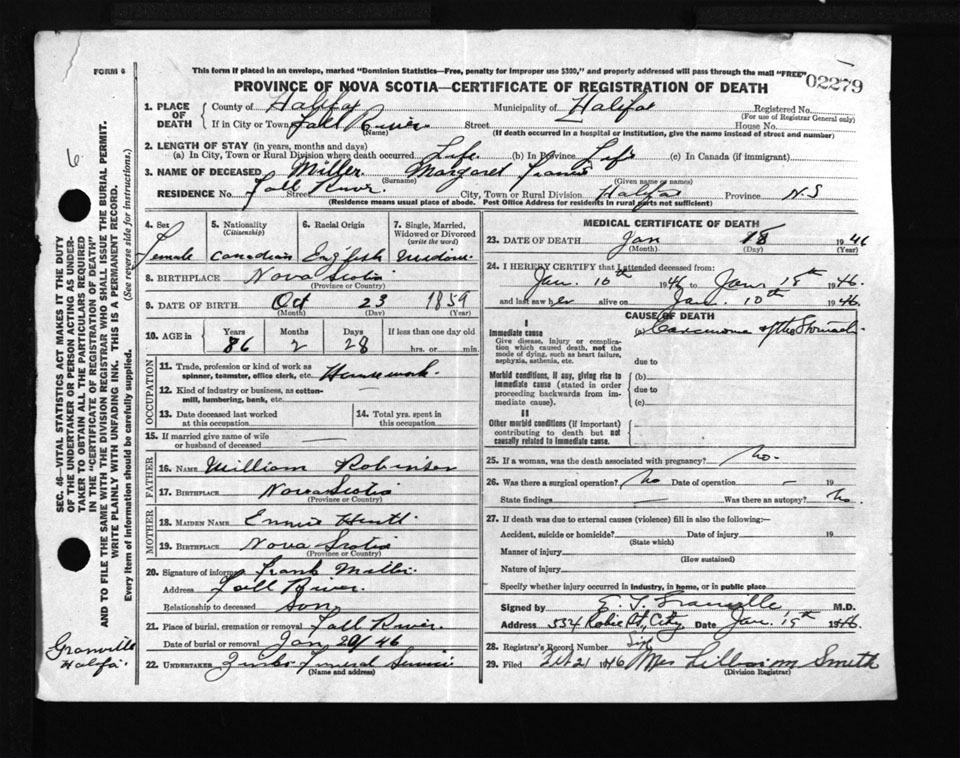 FORM 6
This form if placed in an envelope, marked "Dominion Statistics—Free, penalty for improper use $300," and properly addressed will pass through the mail "FREE"
02279
PROVINCE OF NOVA SCOTIA—CERTIFICATE OF REGISTRATION OF DEATH
1. PLACE OF DEATH
County of Halifax Municipality of Halifax Registered No.
(For use of Registrar General only)
If in City or Town Fall River Street House No.
(Name) (If death occurred in a hospital or institution, give the name instead of street and number)
2. LENGTH OF STAY (in years, months and days)
(a) In City, Town or Rural Division where death occurred Life (b) In Province Life (c) In Canada (if immigrant)
3. NAME OF DECEASED Miller Margaret Francis
(Surname) (Given name or names)
RESIDENCE No. Fall River Street City, Town or Rural Division Halifax Province N.S
(Residence means usual place of abode. Post Office Address for residents in rural parts not sufficient)
4. Sex Female
5. Nationality (Citizenship) Canadian
6. Racial Origin English
7. Single, Married, Widowed or Divorced (write the word) Widow
8. BIRTHPLACE Nova Scotia
(Province or Country)
9. DATE OF BIRTH Oct 23 1859
(Month) (Day) (Year)
10. AGE in Years 86 Months 2 Days 28 If less than one day old hrs. or min.
OCCUPATION
11. Trade, profession or kind of work as spinner, teamster, office clerk, etc. Housework
12. Kind of industry or business, as cotton-mill, lumbering, bank, etc. —
13. Date deceased last worked at this occupation
14. Total yrs. spent in this occupation
15. If married give name of wife or husband of deceased —
FATHER
16. NAME William Robinson
17. BIRTHPLACE Nova Scotia
(Province or Country)
MOTHER
18. MAIDEN NAME
19. BIRTHPLACE Nova Scotia
(Province or Country)
20. Signature of informant Frank Miller
Address Fall River
Relationship to deceased Son
21. Place of burial, cremation or removal Fall River
Date of burial or removal Jan 46
22. UNDERTAKER Funeral Service
(Name and address)
MEDICAL CERTIFICATE OF DEATH
23. DATE OF DEATH Jan 18 1946
(Month) (Day) (Year)
24. I HEREBY CERTIFY that I attended deceased from:
Jan. 10th 1946 to Jan. 19th 1946
and last saw her alive on Jan. 10th 1946.
CAUSE OF DEATH
I
Immediate cause (a) Carcinoma of the Stomach
Give disease, injury or complication which caused death, not the mode of dying, such as heart failure, asphyxia, asthenia, etc.
due to
Morbid conditions, if any, giving rise to immediate cause (stated in order proceeding backwards from immediate cause).
(b)
due to
(c)
II
Other morbid conditions (if important) contributing to death but not causally related to immediate cause.
25. If a woman, was the death associated with pregnancy? No.
26. Was there a surgical operation? No Date of operation — 19
State findings — Was there an autopsy? No.
27. If death was due to external causes (violence) fill in also the following:
Accident, suicide or homicide? Date of injury 19
(State which)
Manner of injury
(How sustained)
Nature of injury
Specify whether injury occurred in industry, in home, or in public place
Signed by E. T. Granville M.D.
Address 334 Robie St, City Date Jan. 19th 1946
28. Registrar's Record Number
29. Filed 21 1946 Mrs Lillian M Smith
(Division Registrar)
SEC. 46—VITAL STATISTICS ACT MAKES IT THE DUTY OF THE UNDERTAKER OR PERSON ACTING AS UNDERTAKER TO OBTAIN ALL THE PARTICULARS REQUIRED IN THE "CERTIFICATE OF REGISTRATION OF DEATH"
AND TO FILE THE SAME WITH THE DIVISION REGISTRAR WHO SHALL ISSUE THE BURIAL PERMIT.
WRITE PLAINLY WITH UNFADING INK. THIS IS A PERMANENT RECORD.
Every item of information should be carefully supplied. (See reverse side for instructions.)
6
Granville
Halifax